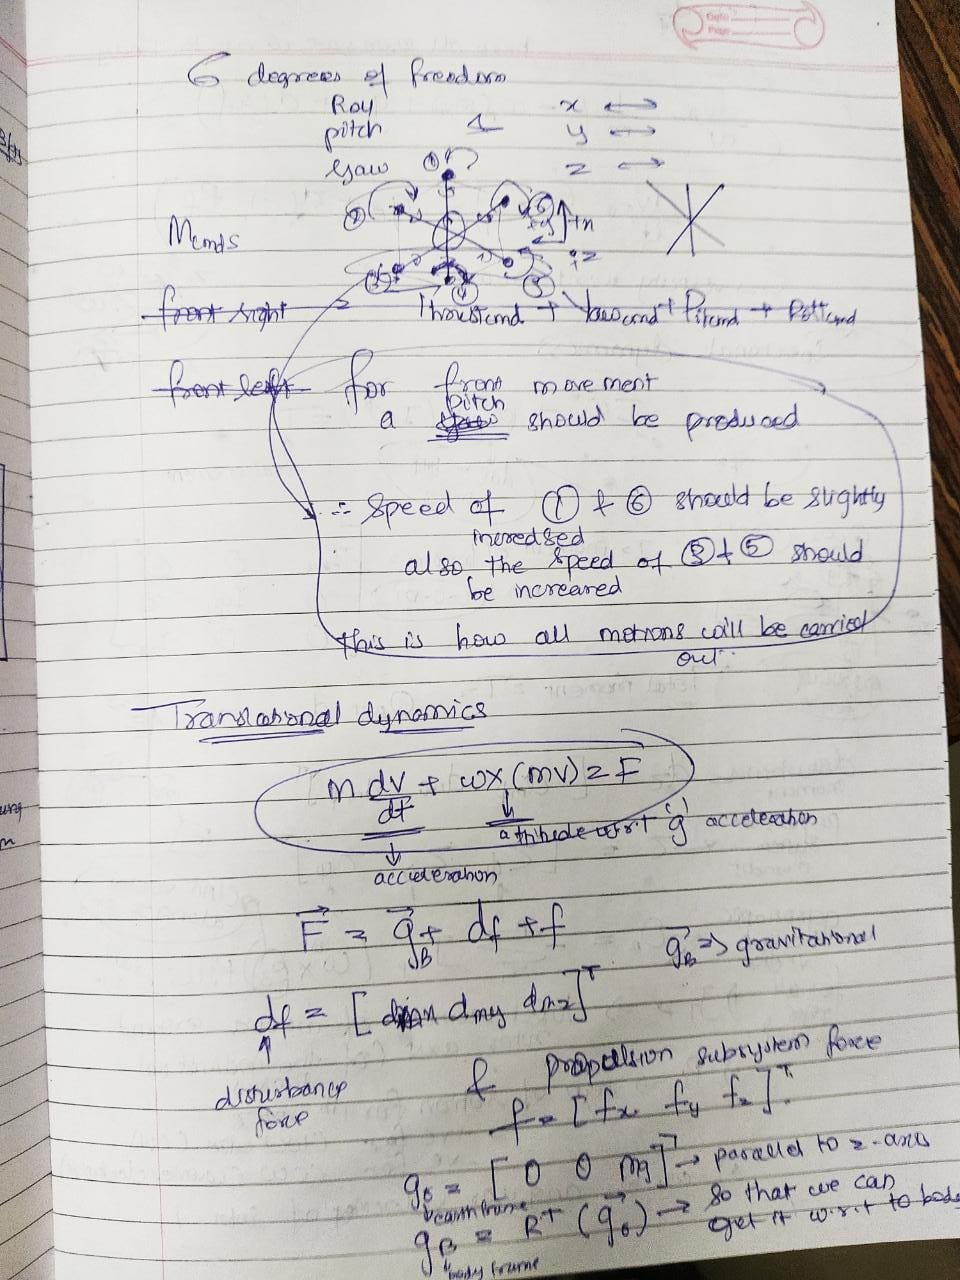 6 degrees of freedom
Roy x ↔
pitch y ↔
Yaw z ↔
①
② ⑥
+y +x
Mcmds +z
③ ④ ⑤
front right = Thrustcmd + Yawcmd + Pitcmd + Rollcmd
front left for front movement
pitch
a should be produced
∴ Speed of ① & ⑥ should be slightly
increased
also the speed of ③ + ⑤ should
be increared
this is how all motions will be carried
out.
Translational dynamics
m dv/dt + ωx(mv) = F
attitude w.r.t 'g' acceleration
acceleration
F = g_B + df + f
g_B => gravitational
df = [ dmx dmy dmz ]ᵀ
disturbance
force
f propulsion subsystem force
f = [ fx fy fz ]ᵀ.
g_o = [ 0 0 mg ]ᵀ → parallel to z-axis
earth frame
g_B = Rᵀ (g_o) → so that we can
get it w.r.t to body
body frame